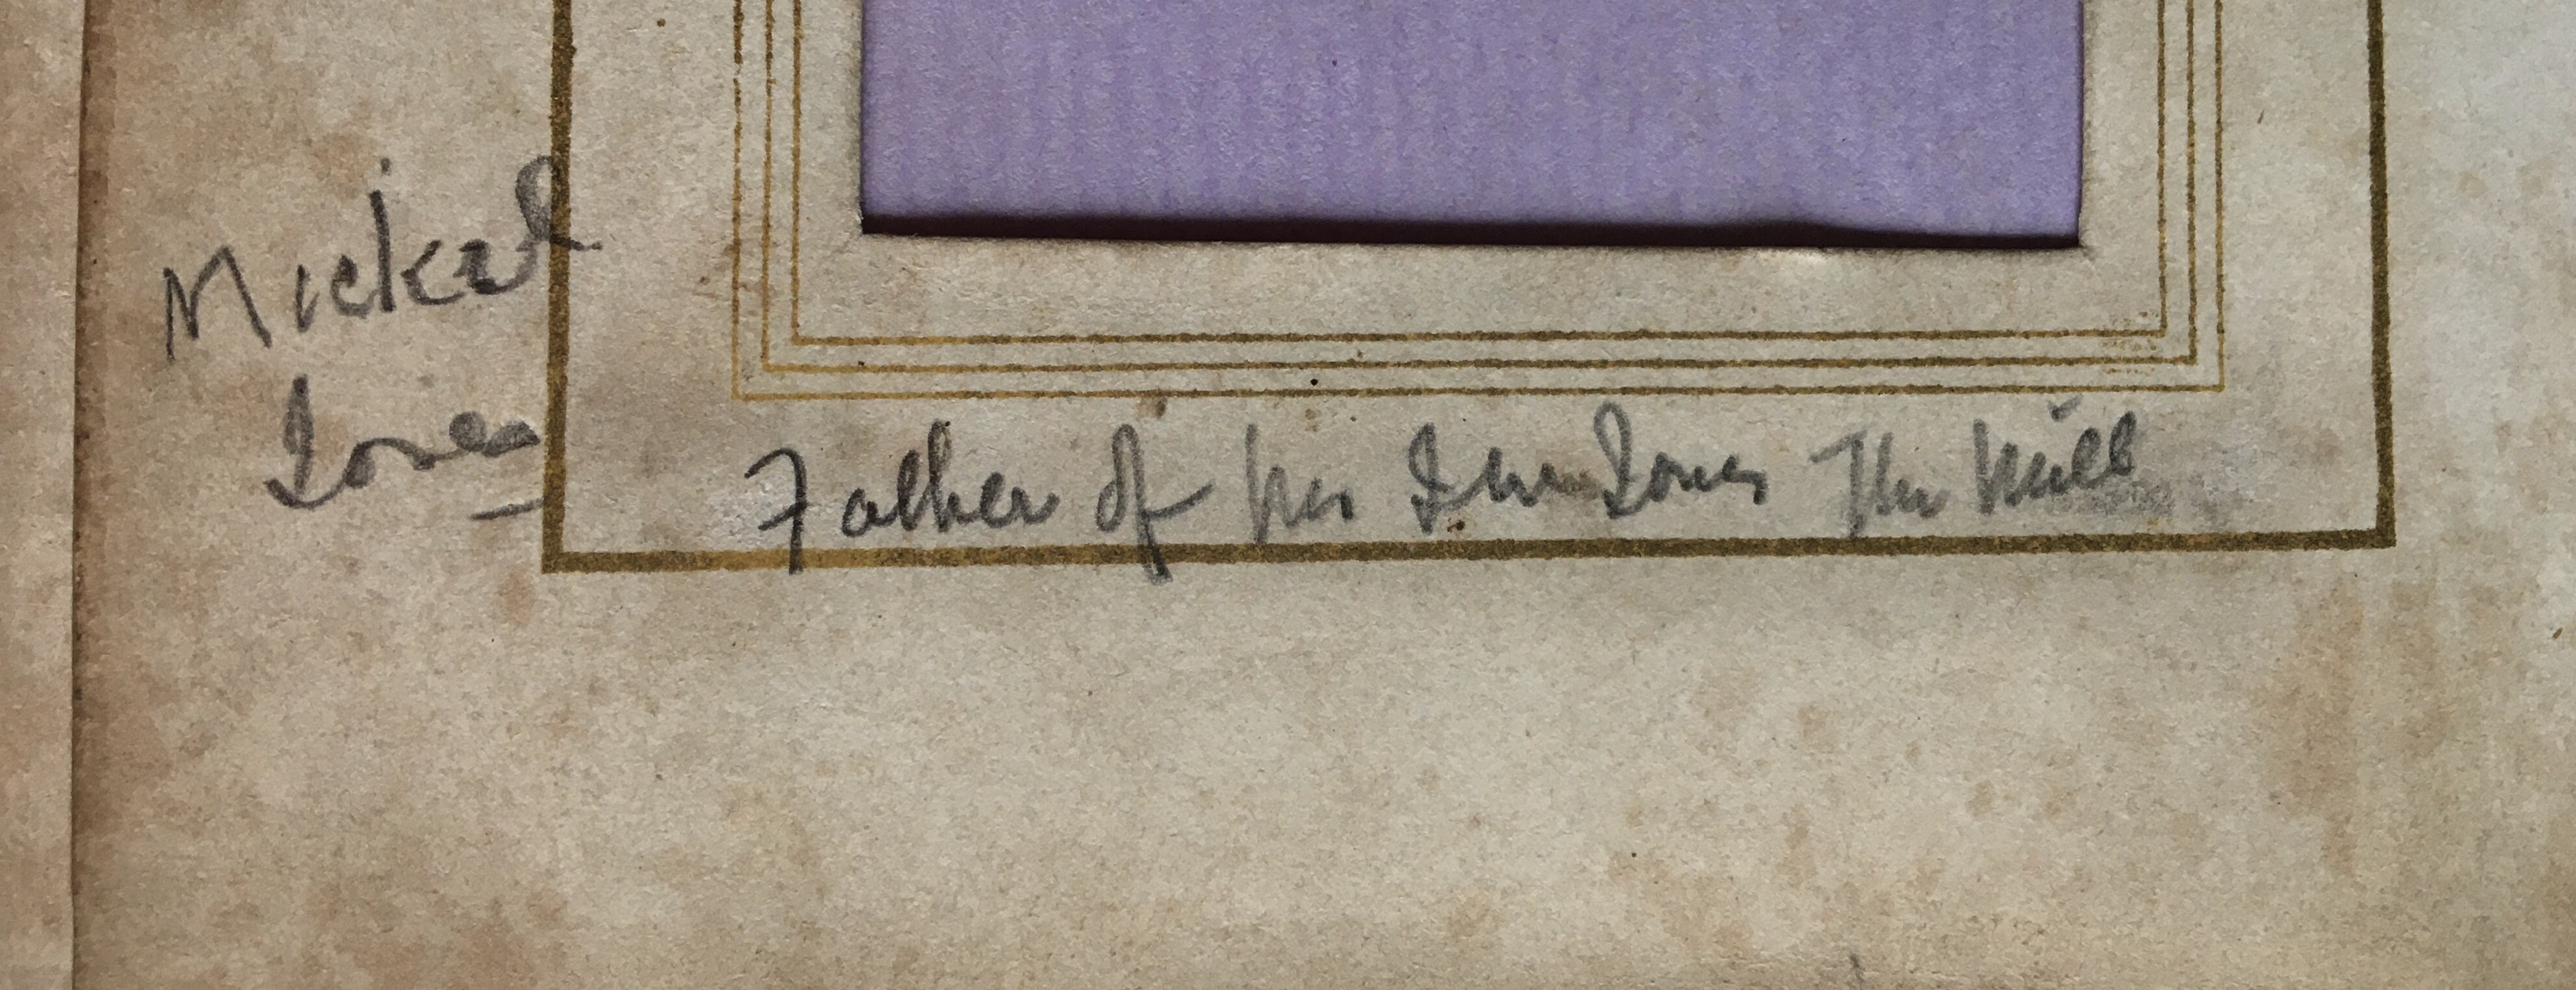 Mickel
Jones
Father of Mrs Jones The Mill